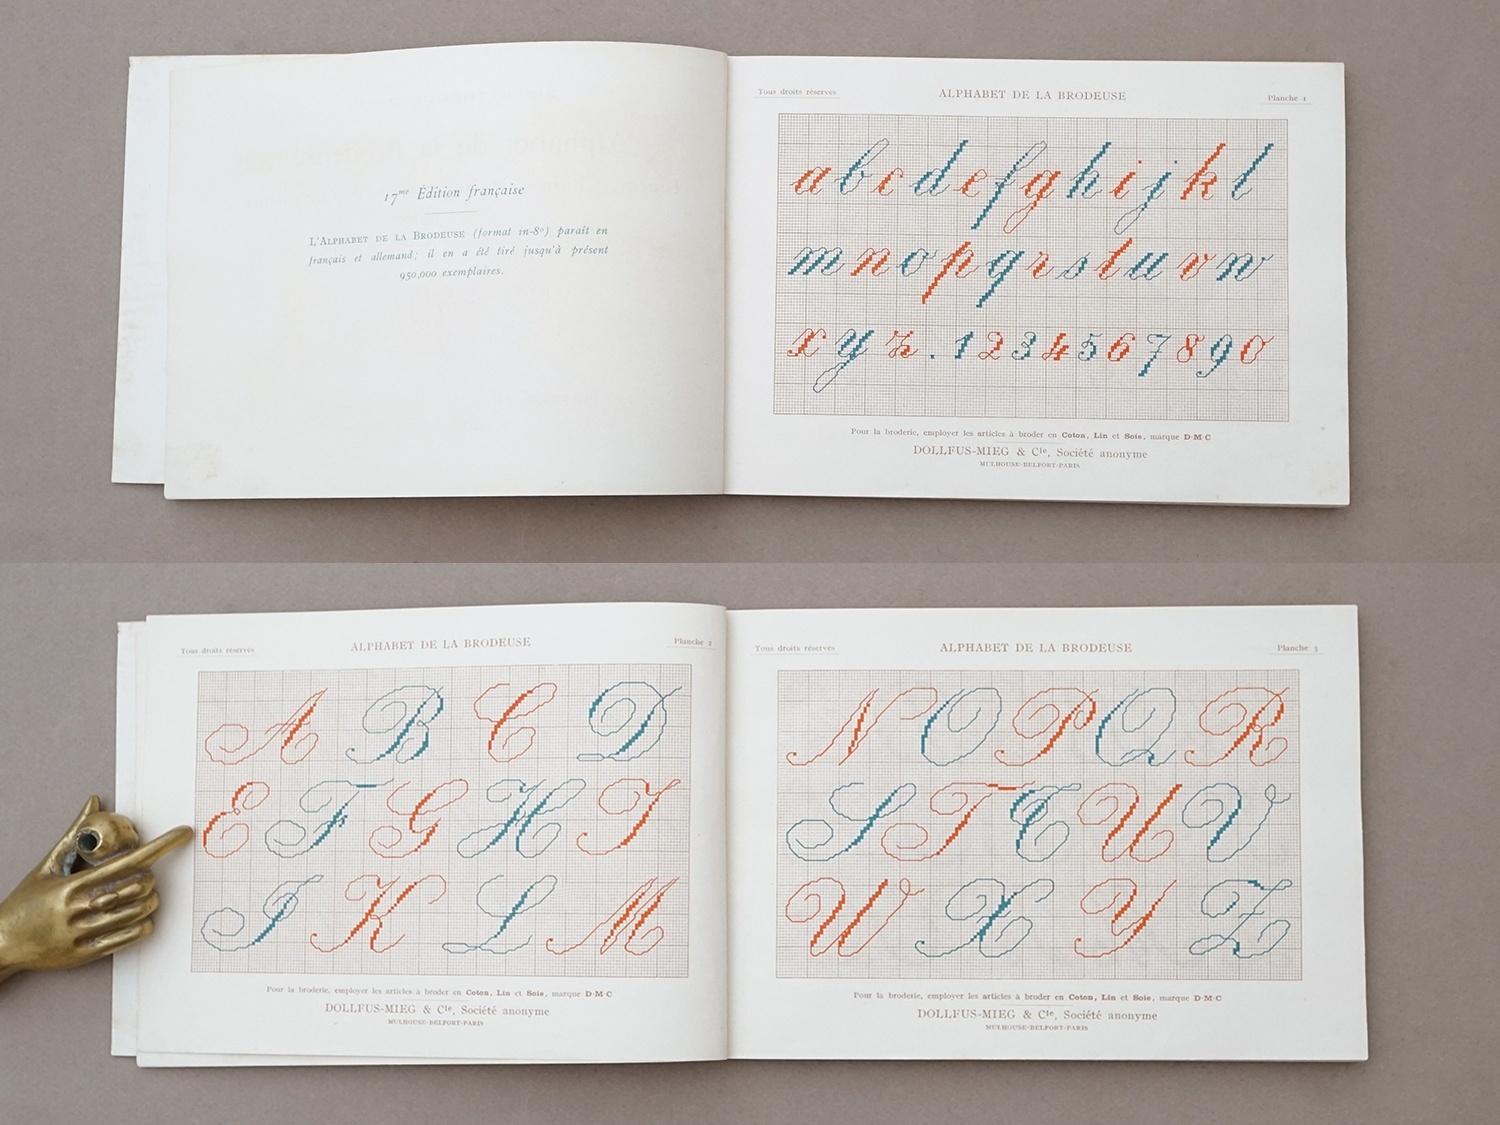 17me Édition française
L'ALPHABET DE LA BRODEUSE (format in-8º) paraît en
français et allemand; il en a été tiré jusqu'à présent
950,000 exemplaires.
Tous droits réservés
ALPHABET DE LA BRODEUSE
Planche 1
a b c d e f g h i j k l
m n o p q r s t u v w
x y z . 1 2 3 4 5 6 7 8 9 0
Pour la broderie, employer les articles à broder en Coton, Lin et Soie, marque D·M·C
DOLLFUS-MIEG & Cie, Société anonyme
MULHOUSE-BELFORT-PARIS
Tous droits réservés
ALPHABET DE LA BRODEUSE
Planche 2
A B C D
E F G H I
J K L M
Pour la broderie, employer les articles à broder en Coton, Lin et Soie, marque D·M·C
DOLLFUS-MIEG & Cie, Société anonyme
MULHOUSE-BELFORT-PARIS
Tous droits réservés
ALPHABET DE LA BRODEUSE
Planche 3
N O P Q R
S T T U V
W X Y Z
Pour la broderie, employer les articles à broder en Coton, Lin et Soie, marque D·M·C
DOLLFUS-MIEG & Cie, Société anonyme
MULHOUSE-BELFORT-PARIS